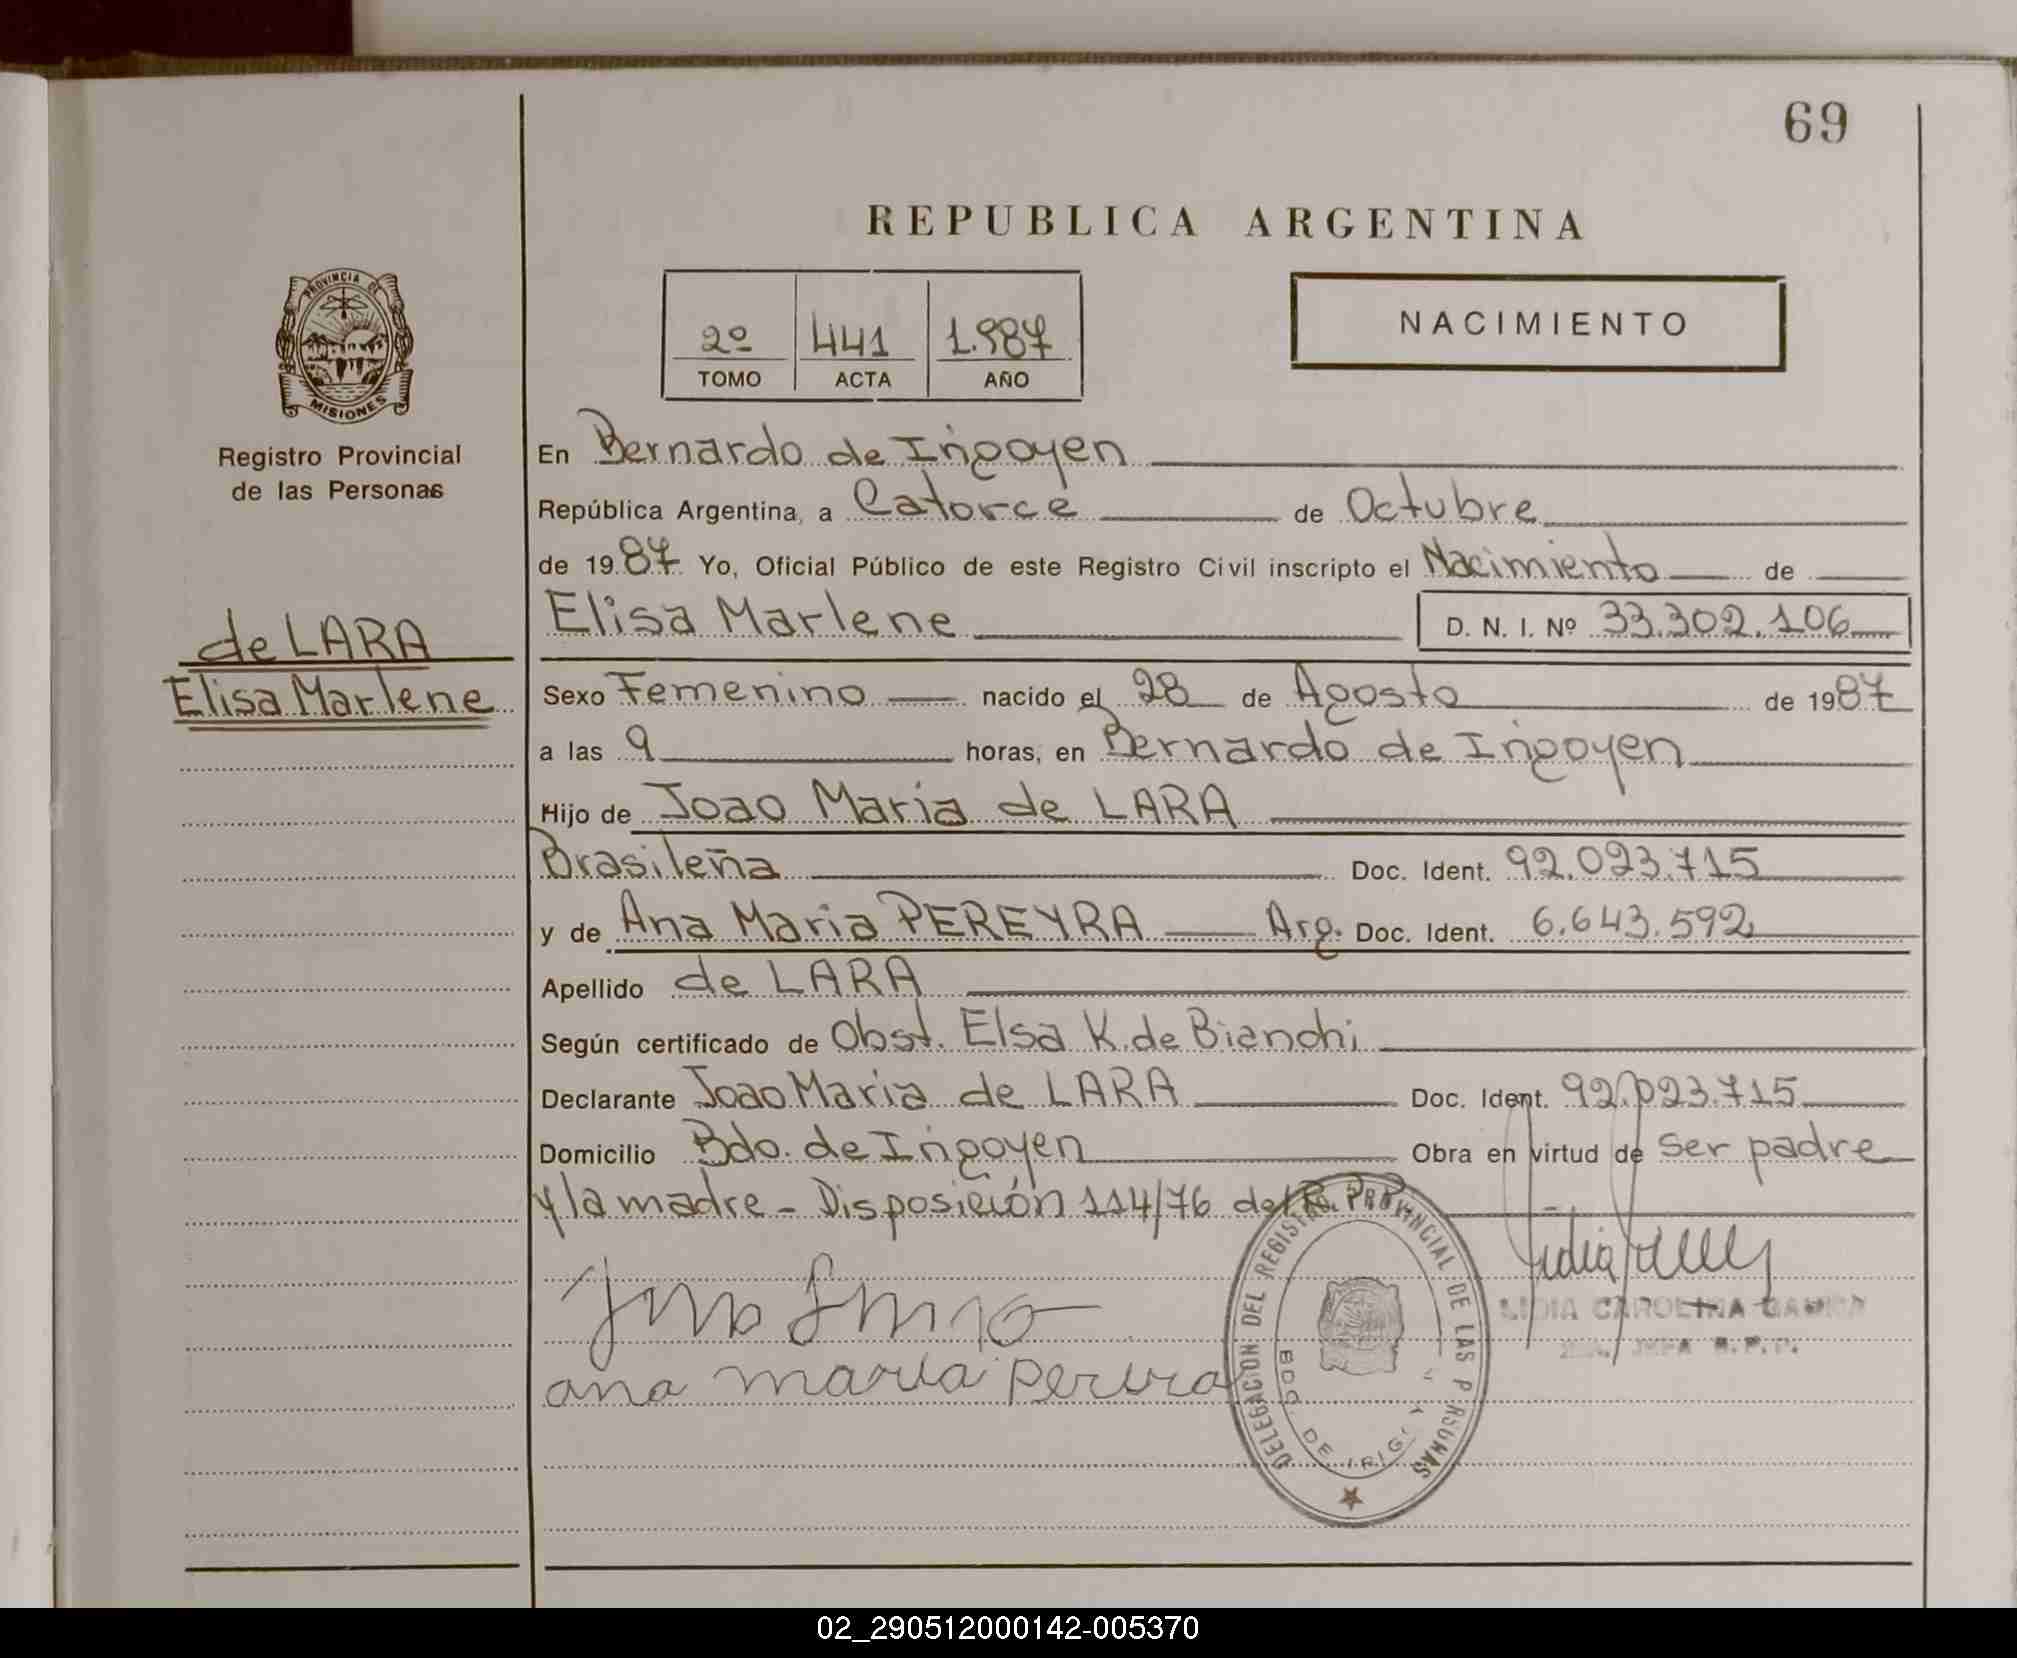 69
REPUBLICA ARGENTINA
PROVINCIA DE
MISIONES
2º 441 1.987
TOMO ACTA AÑO
NACIMIENTO
Registro Provincial
de las Personas
En Bernardo de Irigoyen
República Argentina, a Catorce de Octubre
de 1987 Yo, Oficial Público de este Registro Civil inscripto el Nacimiento de
Elisa Marlene D. N. I. Nº 33.302.106
de LARA
Elisa Marlene
Sexo Femenino nacido el 28 de Agosto de 1987
a las 9 horas, en Bernardo de Irigoyen
Hijo de Joao Maria de LARA
Brasileña Doc. Ident. 92.023.715
y de Ana Maria PEREYRA Arg. Doc. Ident. 6.643.592
Apellido de LARA
Según certificado de Obst. Elsa K. de Bianchi
Declarante Joao Maria de LARA Doc. Ident. 92.023.715
Domicilio Bdo. de Irigoyen Obra en virtud de ser padre
y la madre - Disposición 114/76 del R. P. P.
ana maria
DELEGACION DEL REGISTRO PROVINCIAL DE LAS P RSONAS
BDO. DE IRIGOY
LIDIA CAROLINA
JEFA R.P.P.
02_290512000142-005370